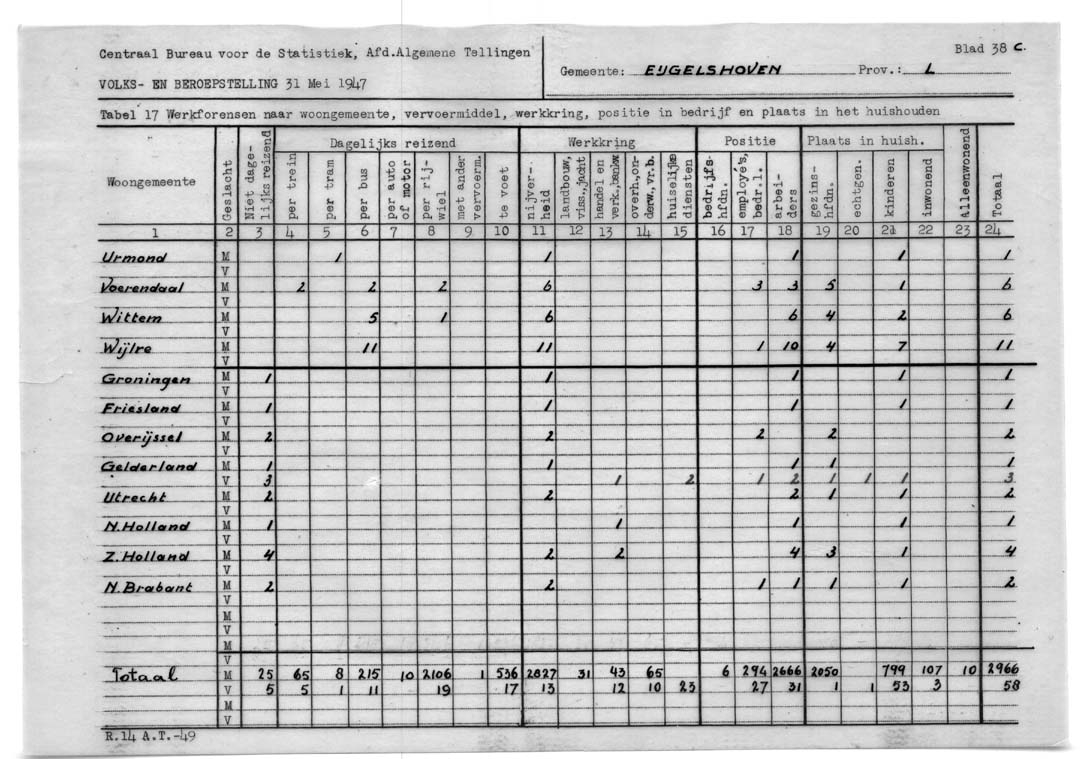 Centraal Bureau voor de Statistiek, Afd.Algemene Tellingen
VOLKS- EN BEROEPSTELLING 31 Mei 1947
Gemeente: EIJGELSHOVEN Prov.: L
Blad 38 C.
Tabel 17 Werkforensen naar woongemeente, vervoermiddel, werkkring, positie in bedrijf en plaats in het huishouden
Dagelijks reizend Werkkring Positie Plaats in huish.
Woongemeente Geslacht Niet dage-lijks reizend per trein per tram per bus per auto of motor per rij-wiel met ander vervoerm. te voet nijver-heid landbouw, viss.,jacht handel en verk.,bankw. overh.,on-derw.,vr.b. huiselijke diensten bedrijfs-hfdn. employé's, bedr.l. arbei-ders gezins-hfdn. echtgen. kinderen inwonend Alleenwonend Totaal
1 2 3 4 5 6 7 8 9 10 11 12 13 14 15 16 17 18 19 20 21 22 23 24
Urmond M 1 1 1 1 1
V
Voerendaal M 2 2 2 6 3 3 5 1 6
V
Wittem M 5 1 6 6 4 2 6
V
Wijlre M 11 11 1 10 4 7 11
V
Groningen M 1 1 1 1 1
V
Friesland M 1 1 1 1 1
V
Overijssel M 2 2 2 2 2
V
Gelderland M 1 1 1 1 1
V 3 1 2 1 2 1 1 1 3
Utrecht M 2 2 2 1 1 2
V
N.Holland M 1 1 1 1 1
V
Z.Holland M 4 2 2 4 3 1 4
V
N.Brabant M 2 2 1 1 1 1 2
V
M
V
M
V
Totaal M 25 65 8 215 10 2106 1 536 2827 31 43 65 6 294 2666 2050 799 107 10 2966
V 5 5 1 11 19 17 13 12 10 23 27 31 1 1 53 3 58
M
V
R.14 A.T.-49